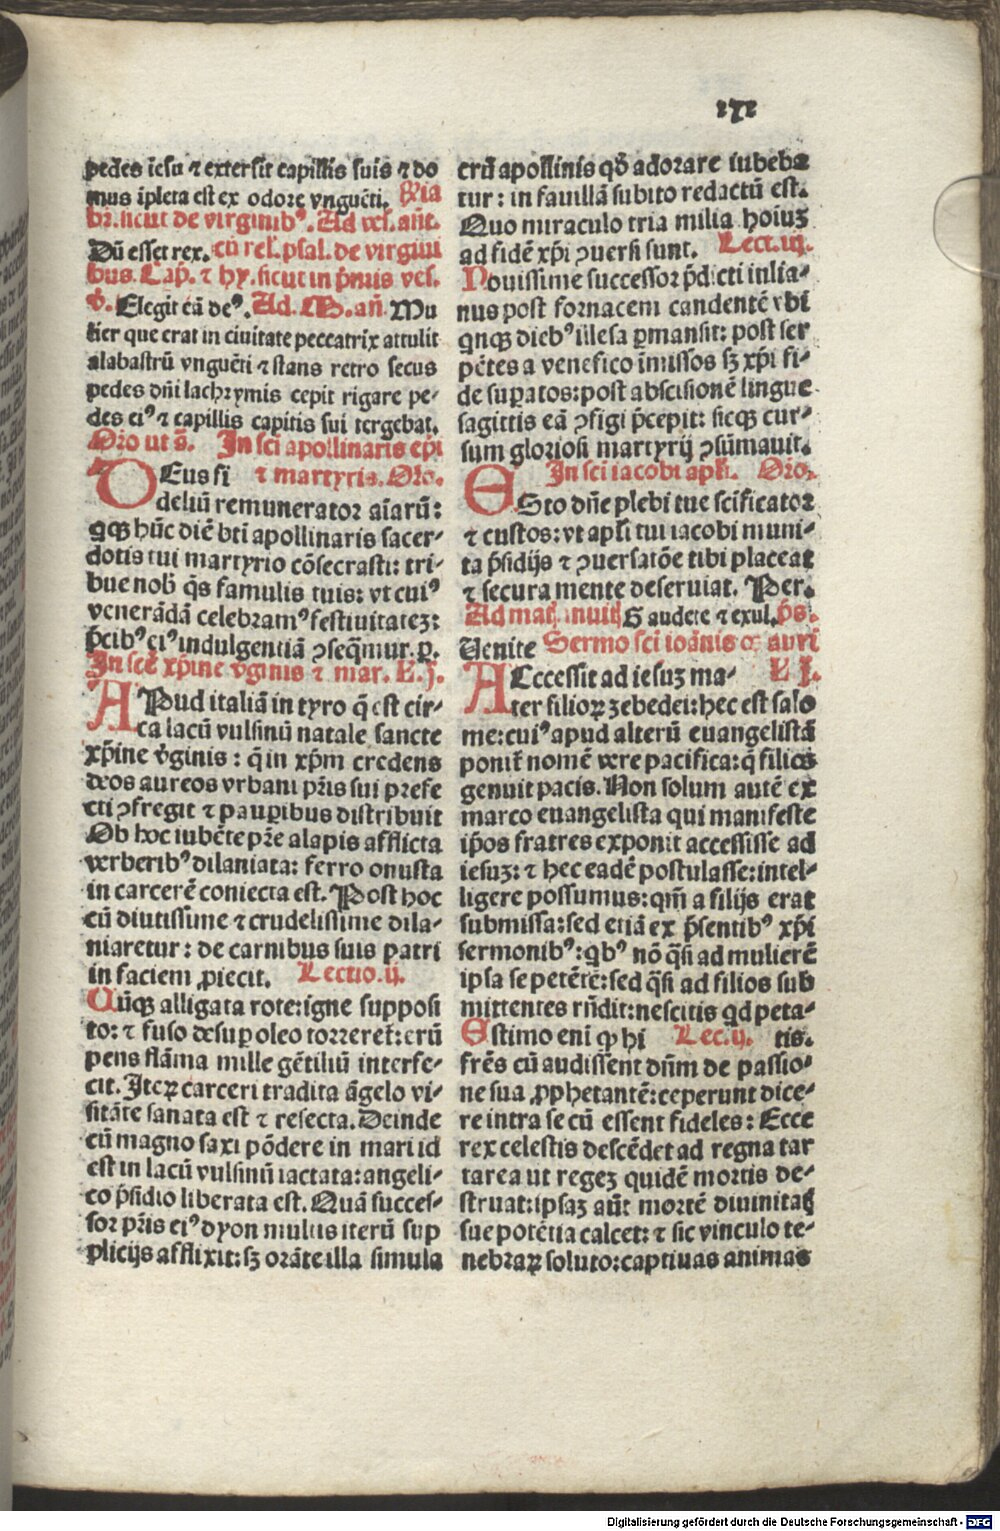 xxi
pedes iesu ⁊ extersit capillis suis ⁊ do
mus īpleta est ex odore vnguēti. Ria
br̄. sicut de virginibꝰ. Ad vesꝰ. añe.
Dū esset rex. cū relꝰ. psal. de virgini
bus. Cap̄. ⁊ hy. sicut in p̄mis ves.
v̄. Elegit eā deꝰ. Ad. M. añ. Mu
lier que erat in ciuitate peccatrix attulit
alabastrū vnguēti ⁊ stans retro secus
pedes dñi lachrymis cepit rigare pe⸗
des eiꝰ ⁊ capillis capitis sui tergebat.
Oro ut s̄. In sci apollinaris ep̄i
DEus fi ⁊ martyris. Oro.
deliū remunerator aīarū:
qꝫ hūc diē bt̄i apollinaris sacer⸗
dotis tui martyrio cōsecrasti: tri⸗
bue nob̄ q̄s famulis tuis: vt cuiꝰ
venerādā celebramꝰ festiuitateꝫ:
p̄cibꝰ eiꝰ indulgentiā ꝯseq̄mur. ꝑ.
In scē xp̄ine v̄ginis ⁊ mar. L. j.
APud italiā in tyro q̄ est cir⸗
ca lacū vulsinū natale sancte
xp̄ine v̄ginis: q̄ in xp̄m credens
deos aureos vrbani pr̄is sui prefe
cti ꝯfregit ⁊ pauꝑibus distribuit
Ob hoc iubēte pr̄e alapis afflicta
verberibꝰ dilaniata: ferro onusta
in carcerē coniecta est. Post hoc
cū diutissime ⁊ crudelissime dila⸗
niaretur: de carnibus suis patri
in faciem ꝓiecit. Lectio. ij.
Cūqꝫ alligata rote: igne supposi
to: ⁊ fuso desuꝑ oleo torreret̄: erū
pens flāma mille gētiliū interfe⸗
cit. Iteꝝ carceri tradita āgelo vi⸗
sitāte sanata est ⁊ refecta. Deinde
cū magno saxi pōdere in mari id
est in lacū vulsinū iactata: angeli⸗
co p̄sidio liberata est. Quā succes⸗
sor pr̄is eiꝰ dyon multis iterū sup
plicijs afflixit: sꝫ orāte illa simula
crū apollinis qd̄ adorare iubeba
tur: in fauillā subito redactū est.
Quo miraculo tria milia hoīuꝫ
ad fidē xp̄i ꝯuersi sunt. Lect. iij.
Nouissime successor p̄dicti iulia⸗
nus post fornacem candentē vbi
qnqꝫ diebꝰ illesa ꝑmansit: post ser
pētes a venefico īmissos sꝫ xp̄i fi⸗
de suꝑatos: post abscisionē lingue
sagittis eā ꝯfigi p̄cepit: sicqꝫ cur⸗
sum gloriosi martyrij ꝯsūmauit.
In sci iacobi apl̄i. Oro.
ESto dñe plebi tue scificator
⁊ custos: vt apl̄i tui iacobi muni⸗
ta p̄sidijs ⁊ ꝯuersatōe tibi placeat
⁊ secura mente deseruiat. Per.
Ad mat̄. inuit̄ Gaudete ⁊ exul. ps.
Uenite Sermo sci ioānis os auri
ACcessit ad iesuꝫ ma⸗ L J.
ter filioꝝ zebedei: hec est salo
me: cuiꝰ apud alterū euangelistā
ponit̄ nomē vere pacifica: q̄ filios
genuit pacis. Non solum autē ex
marco euangelista qui manifeste
ip̄os fratres exponit accessisse ad
iesuꝫ: ⁊ hec eadē postulasse: intel⸗
ligere possumus: qm̄ a filijs erat
submissa: sed etiā ex p̄sentibꝰ xp̄i
sermonibꝰ: qbꝰ nō q̄si ad mulierē
ipsa se petēte: sed q̄si ad filios sub
mittentes rñdit: nescitis qd peta⸗
Estimo eni ꝙ hi Lec. ij. tis.
frēs cū audissent dñm de passio⸗
ne sua ꝓphetantē: ceperunt dice⸗
re intra se cū essent fideles: Ecce
rex celestis descēdet ad regna tar
tarea ut regeꝫ quidē mortis de⸗
struat: ipsaꝫ aūt mortē diuinitatꝭ
sue potētia calcet: ⁊ sic vinculo te⸗
nebraꝝ soluto: captiuas animas
Digitalisierung gefördert durch die Deutsche Forschungsgemeinschaft - DFG